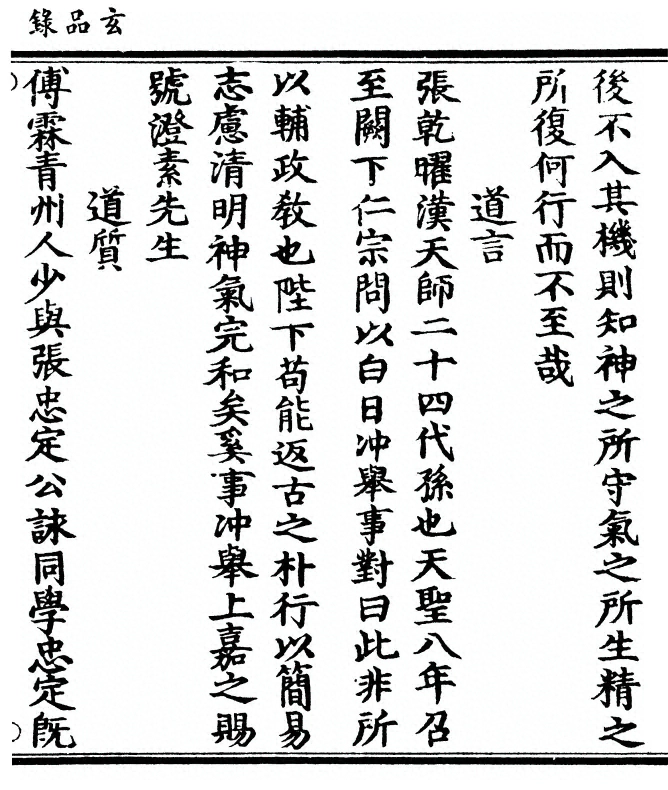 玄品錄
後不入其機則知神之所守氣之所生精之
所復何行而不至哉
道言
張乾曜漢天師二十四代孫也天聖八年召
至闕下仁宗問以白日冲舉事對曰此非所
以輔政教也陛下苟能返古之朴行以簡易
志慮清明神氣完和矣奚事冲舉上嘉之賜
號澄素先生
道質
傅霖青州人少與張忠定公詠同學忠定旣